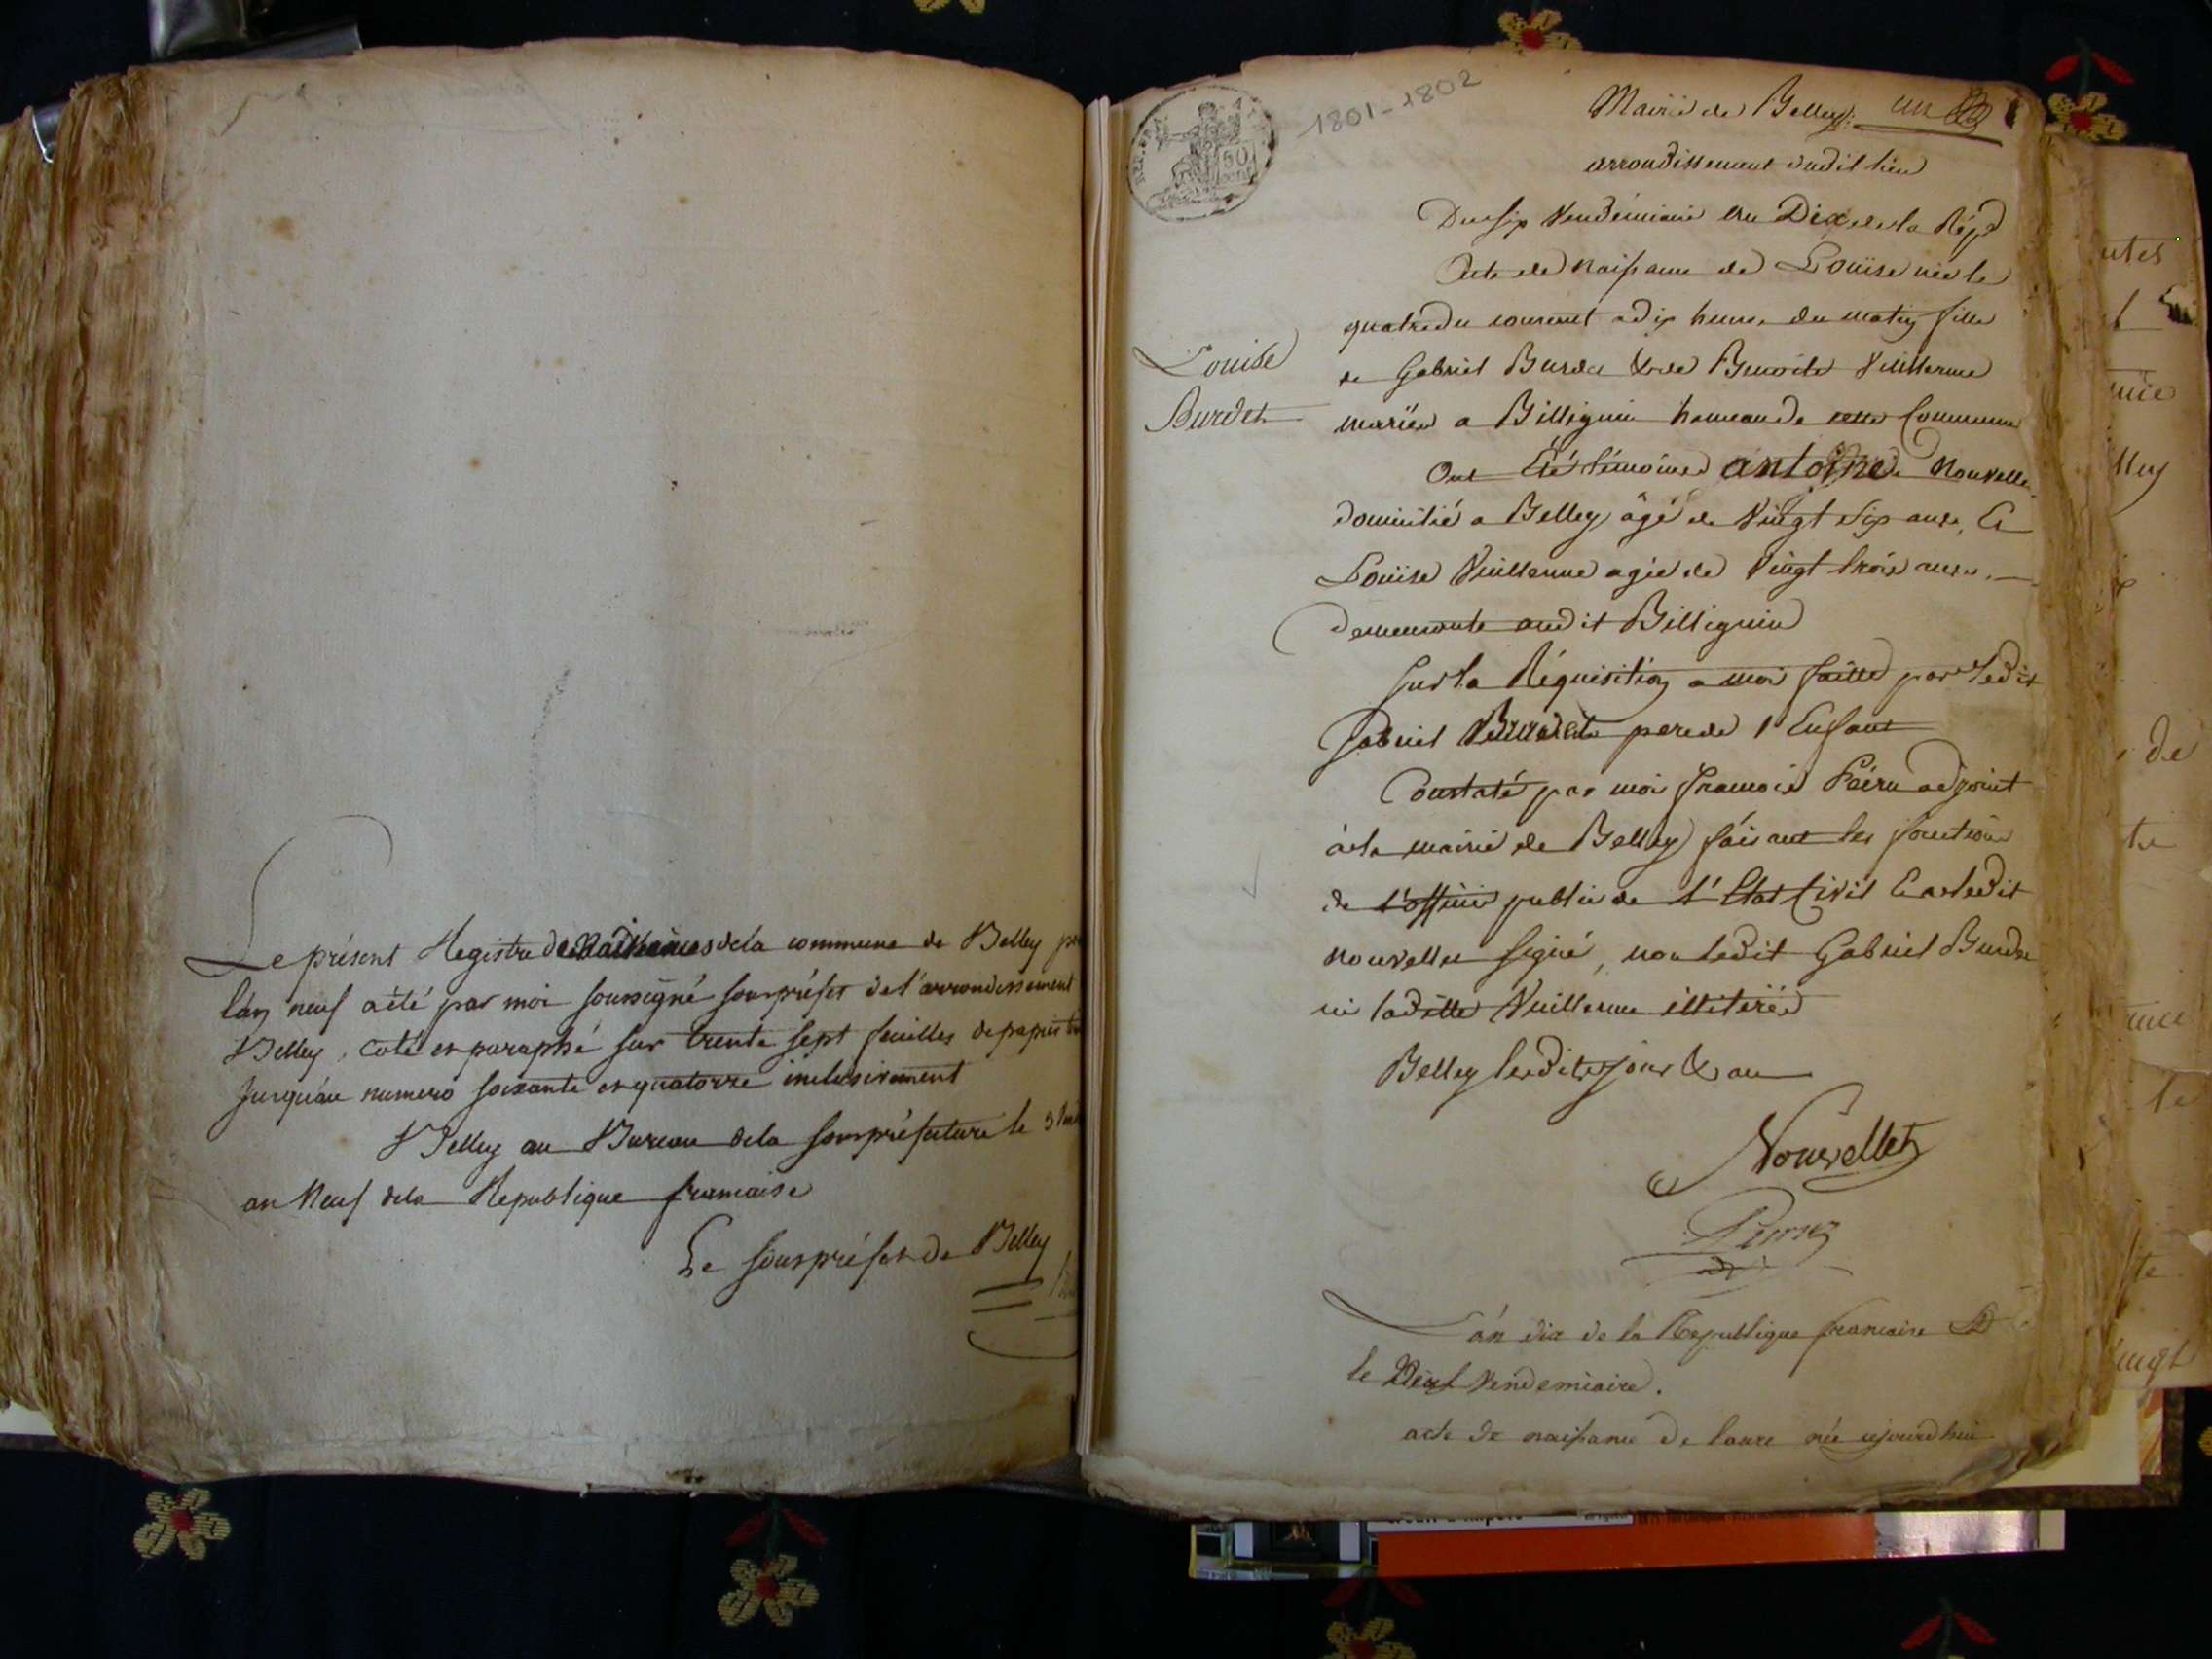 Le présent Registre de Naissances dela commune de Belley
l'an neuf a été par moi soussigné souspréfet de l'arrondissement
Belley, coté et paraphé sur trente sept feuilles de papier
jusqu'au numero soixante et quatorze inclusivement
Belley au Bureau dela souspréfecture le
an Neuf dela Republique francaise
Le souspréfet de Belley
REP. FRA.
50
1801-1802
Mairie de Belley. un
arrondissement dudit lieu
Du six Vendémiaire an Dix de la Rép
Acte de naissance de Louise née le
quatre du courant a dix heures du matin fille
Louise
Burdet
de Gabriel Burdet & de Benoite Vuillerme
mariés a Billignin hameau de cette Commune
Ont Été témoins antoine Nouvelle
domicilié a Belley âgé de Vingt six ans, Et
Louise Vuillerme agée de Vingt trois ans
demeurante audit Billignin
Sur la Réquisition a moi faitte par ledit
Gabriel Burdet pere de l'Enfant
Constaté par moi francois adjoint
à la mairie de Belley faisant les fonctions
de l'officier public de l'Etat Civil Et a ledit
nouvellet signé, non ledit Gabriel Burdet
ni laditte Vuillerme illiterés
Belley lesdits jour & an
Nouvellet
L'an dix de la Republique francaise
le Neuf Vendemiaire.
acte de naissance de laure née ajourdhui
utes
née
lley
de
te
nce
le
te
vingt